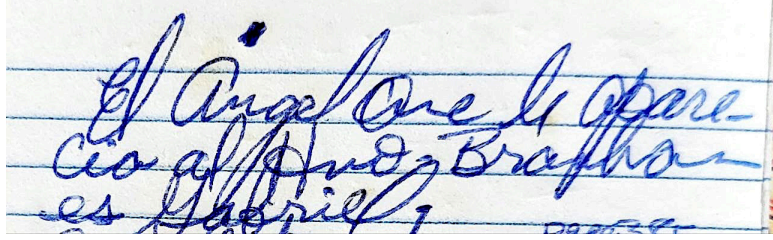 El Angel Que le apare-
cio al Hno. Branham
es Gabriel;